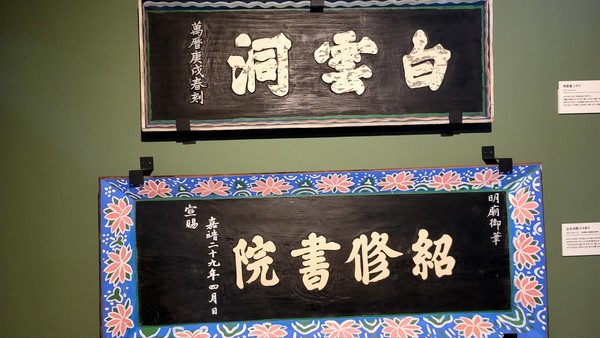 白雲洞
萬曆庚戌春刻
明廟御筆
紹修書院
嘉靖二十九年四月日
宣賜